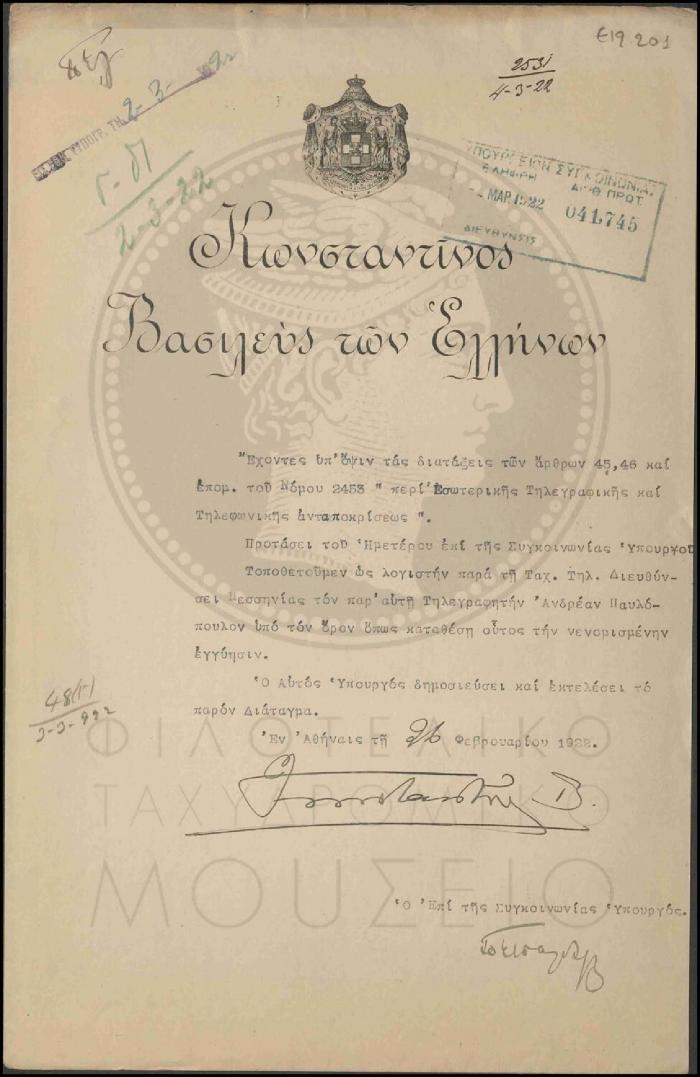 Ε19.201
2531
4-3-22
2-3-22
Γ-Π
2-3-22
ΥΠΟΥΡΓΕΙΟΝ ΣΥΓΚΟΙΝΩΝΙΑΣ
ΕΛΗΦΘΗ ΑΡΙΘ ΠΡΩΤ.
ΜΑΡ 1922 041,745
ΔΙΕΥΘΥΝΣΙΣ
Κωνσταντῖνος
Βασιλεὺς τῶν Ἑλλήνων
Ἔχοντες ὑπ' ὄψιν τάς διατάξεις τῶν ἄρθρων 45,46 καί
ἑπομ. τοῦ Νόμου 2453 " περί Ἐσωτερικῆς Τηλεγραφικῆς καί
Τηλεφωνικῆς ἀνταποκρίσεως ".
Προτάσει τοῦ Ἡμετέρου ἐπί τῆς Συγκοινωνίας Ὑπουργοῦ
Τοποθετοῦμεν ὡς λογιστήν παρά τῇ Ταχ. Τηλ. Διευθύν-
σει Μεσσηνίας τόν παρ' αὐτῇ Τηλεγραφητήν Ἀνδρέαν Παυλό-
πουλον ὑπό τόν ὅρον ὅπως καταθέσῃ οὗτος τήν νενομισμένην
ἐγγύησιν.
Ὁ Αὐτός Ὑπουργός δημοσιεύσει καί ἐκτελέσει τό
παρόν Διάταγμα.
Ἐν Ἀθήναις τῇ 26 Φεβρουαρίου 1922.
Κωνσταντῖνος Β.
Ὁ Ἐπί τῆς Συγκοινωνίας Ὑπουργός.
ΦΙΛΟΤΕΛΙΚΟ
ΤΑΧΥΔΡΟΜΙΚΟ
ΜΟΥΣΕΙΟ